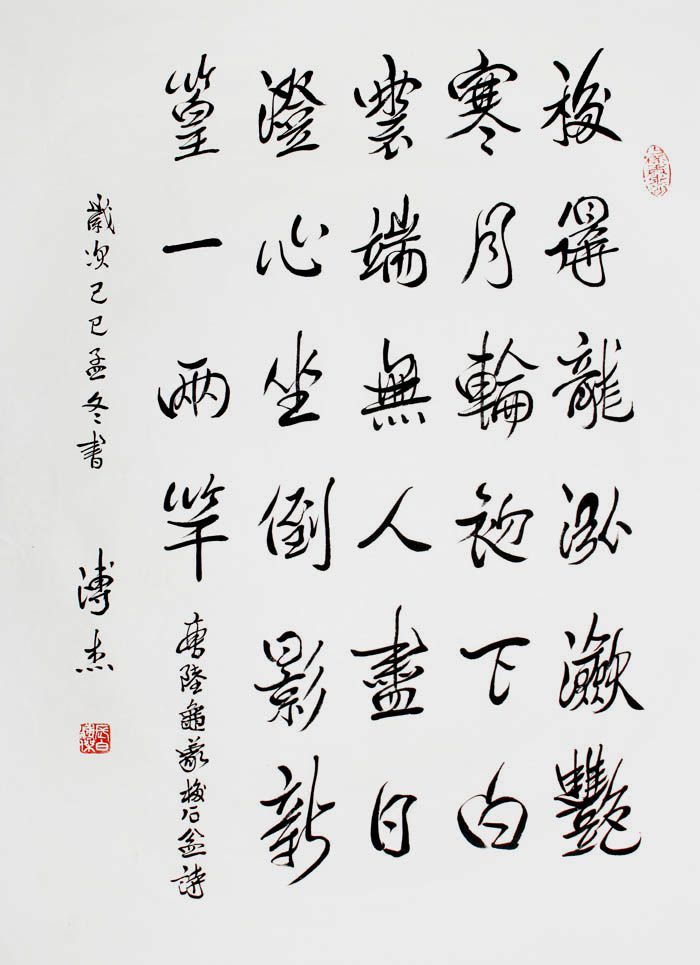 移得龍泓瀲灩
寒月輪初下白
雲端無人盡日
澄心坐倒影新
篁一兩竿
唐陸龜蒙移石盆詩
歲次己巳孟冬書
溥杰